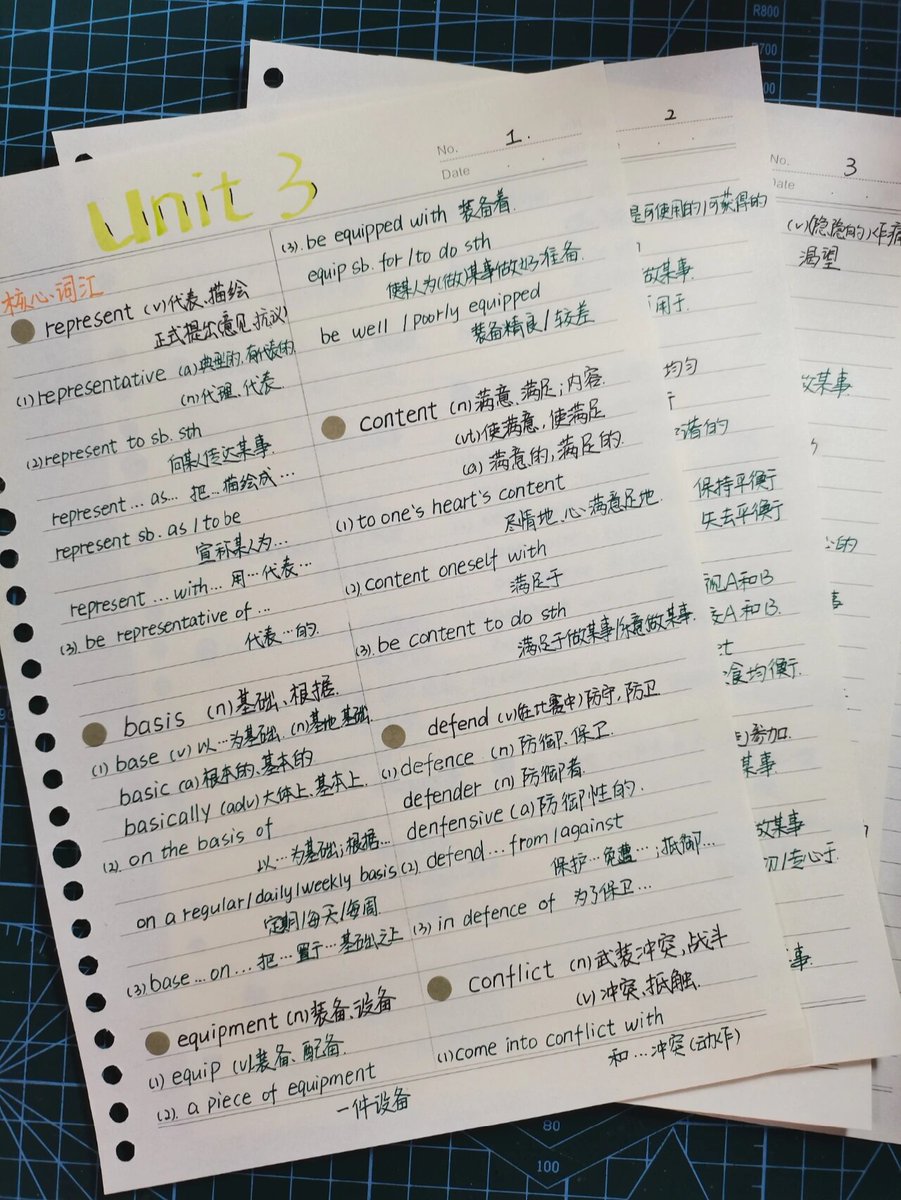 R800
700
No. 1.
Date
Unit 3
核心词汇
represent (v)代表、描绘
正式提出(意见、抗议)
(1) representative (a)典型的、有代表的
(n)代理、代表
(2) represent to sb. sth
向某人传达某事.
represent … as… 把…描绘成…
represent sb. as / to be
宣称某人为…
represent … with… 用…代表…
(3). be representative of …
代表…的.
basis (n)基础、根据.
(1) base (v) 以…为基础. (n)基地、基础
basic (a)根本的、基本的
basically (adv)大体上、基本上.
(2). on the basis of
以…为基础;根据…
on a regular/daily/weekly basis
定期/每天/每周.
(3). base … on … 把…置于…基础之上
equipment (n)装备、设备
(1) equip (v)装备、配备.
(2). a piece of equipment
一件设备
(3). be equipped with 装备着.
equip sb. for / to do sth
使某人为(做)某事做好准备.
be well / poorly equipped
装备精良 / 较差
content (n)满意、满足;内容.
(vt)使满意,使满足
(a) 满意的,满足的.
(1) to one's heart's content
尽情地、心满意足地.
(2). content oneself with
满足于
(3). be content to do sth
满足于做某事/乐意做某事.
defend (v)(在比赛中)防守,防卫
(1) defence (n)防御、保卫.
defender (n)防御者.
denfensive (a)防御性的.
(2). defend … from / against
保护…免遭…;抵御…
(3) in defence of 为了保卫…
conflict (n)武装冲突,战斗
(v)冲突、抵触.
(1) come into conflict with
和…冲突(动作)
2
是可使用的/可获得的
做某事.
用于.
均匀
的
保持平衡
失去平衡
A和B
A和B.
食均衡.
参加.
某事.
做某事
/专心于.
事.
No. 3
Date
(v)(隐隐的)作痛
渴望
做某事.
的
80
100